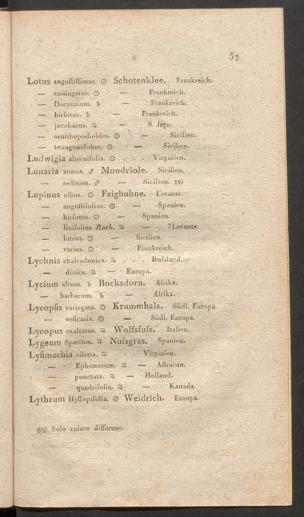 37
Lotus angustissimus. ☉ Schotenklee. Frankreich.
— coniugatus. ☉ — Frankreich.
— Dorycnium. ♄ — Frankreich.
— hirsutus. ♄ — Frankreich.
— jacobaeus. ♃ — S. Jago.
— ornithopodioides. ☉ — Sicilien.
— tetragonolobus. ☉ — Sicilien.
Ludwigia alternifolia. ☉ . . . Virginien.
Lunaria annua. ♂ Mondviole. Sicilien.
— rediviva. ♂ — Sicilien. 59)
Lupinus albus. ☉ Feigbohne. Levante.
— angustifolius. ☉ — Spanien.
— hirsutus. ☉ — Spanien.
— linifolius Roth. ♃ — ? Levante.
— luteus. ☉ — Sicilien.
— varius. ☉ — Frankreich.
Lychnis chalcedonica. ♃ . . . Rußland.
— dioica. ♃ — Europa.
Lycium afrum. ♄ Bocksdorn. Afrika.
— barbarum. ♄ — Afrika.
Lycopsis variegata. ☉ Krummhals. Südl. Europa.
— vesicaria. ☉ — Südl. Europa.
Lycopus exaltatus. ♃ Wolfsfuß. Italien.
Lygeum Spartum. ♃ Nußgras. Spanien.
Lysimachia ciliata. ♃ . . . Virginien.
— Ephemerum. ♃ — Astracan.
— punctata. ♃ — Holland.
— quadrifolia. ♃ — Kanada.
Lythrum Hyssopifolia. ☉ Weidrich. Europa.
59) Solo colore differunt.